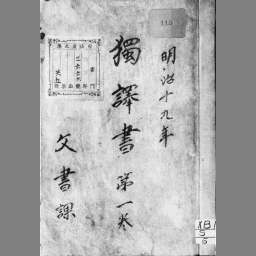 明治十九年
獨譯書 第一巻
文書課
115
B
S
6